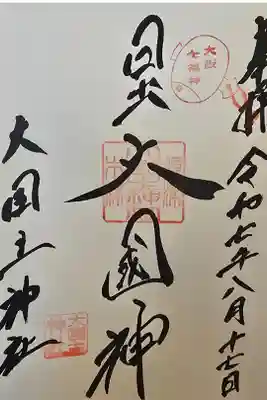 奉拝 令和七年八月十七日
大阪
七福神
日出大國神
大国主神社